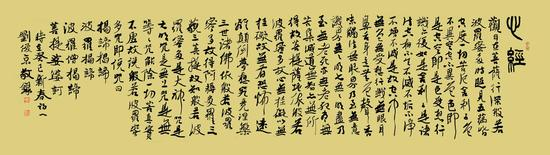 心經
觀自在菩薩行深般若
波羅蜜多時照見五蘊皆
空度一切苦厄舍利子色
不異空空不異色色即
是空空即是色受想行
識亦復如是舍利子是諸
法空相不生不滅不垢不淨
不增不減是故空中無色
無受想行識無眼耳
鼻舌身意無色聲香
味觸法無眼界乃至無意
識界無無明亦無無明盡乃
至無老死亦無老死盡無
苦集滅道無智亦無得以無所
得故菩提薩埵依般若波
羅蜜多故心無罣礙無
罣礙故無有恐怖遠離
顛倒夢想究竟涅槃
三世諸佛依般若波羅
蜜多故得阿耨多羅三
藐三菩提故知般若波
羅蜜多是大神咒是
大明咒是無上咒是無
等等咒能除一切苦真實
不虛故說般若波羅蜜
多咒即說咒曰
揭諦揭諦
波羅揭諦
波羅僧揭諦
菩提薩婆訶
時在癸巳新春初一
劉俊京敬錄